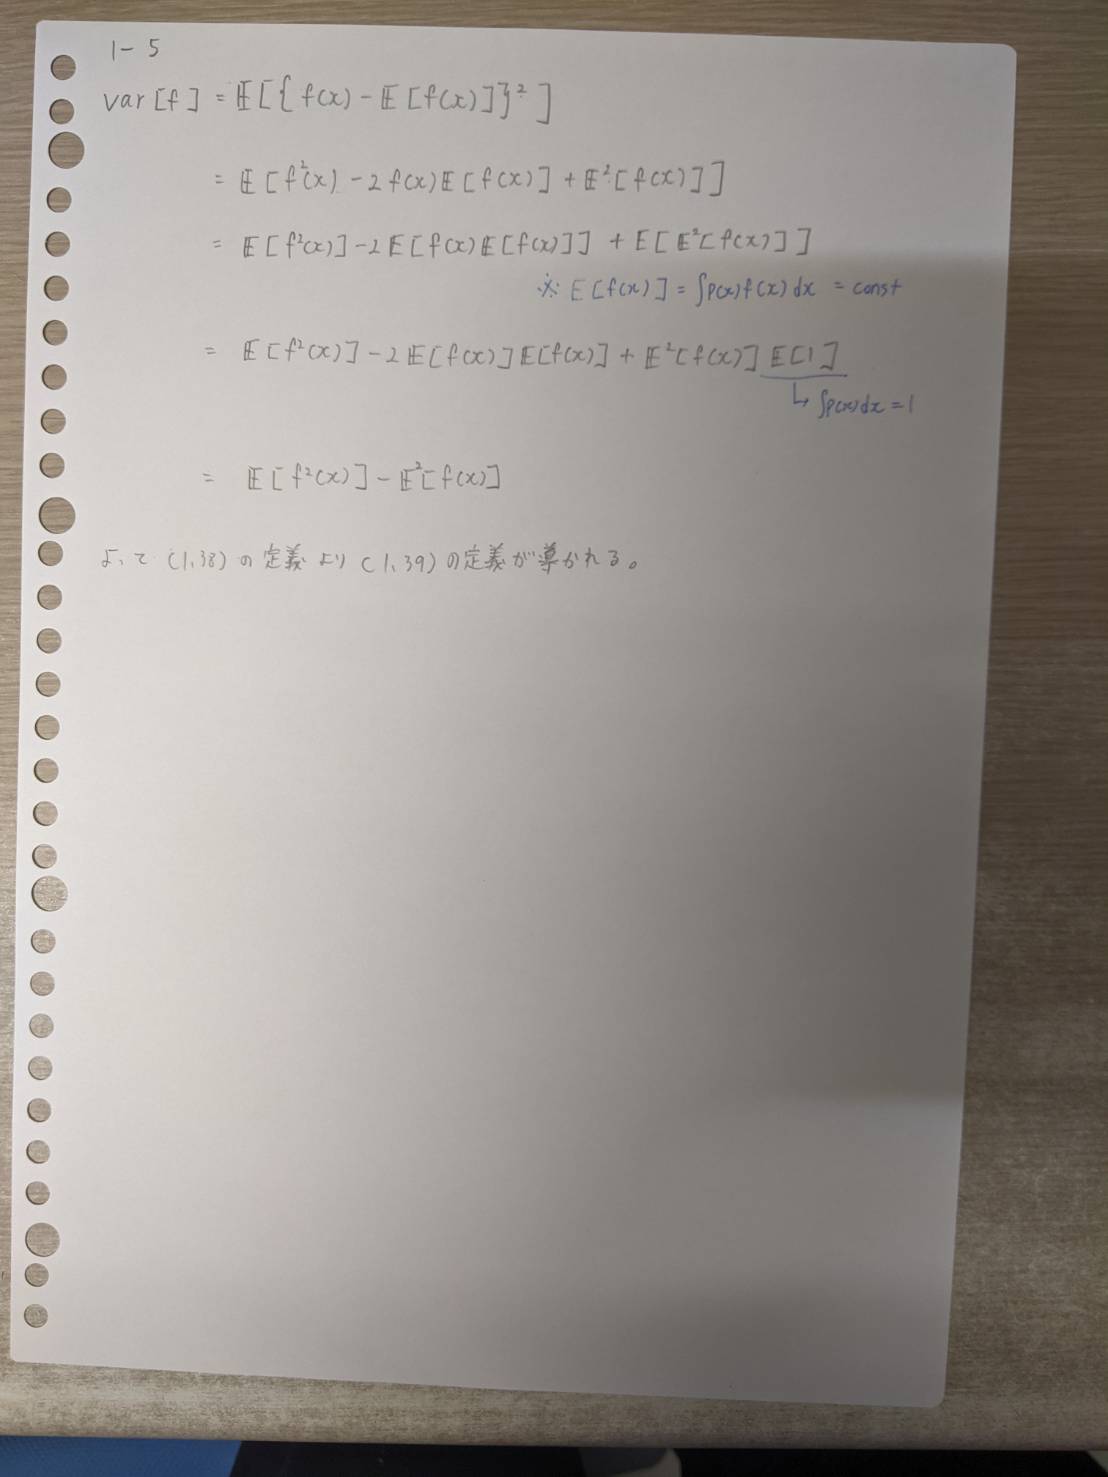 1-5
var[f] = 𝔼[{f(x) - 𝔼[f(x)]}²]
= 𝔼[f²(x) - 2f(x)𝔼[f(x)] + 𝔼²[f(x)]]
= 𝔼[f²(x)] - 2𝔼[f(x)𝔼[f(x)]] + 𝔼[𝔼²[f(x)]]
※ E[f(x)] = ∫p(x)f(x)dx = const
= 𝔼[f²(x)] - 2𝔼[f(x)]𝔼[f(x)] + 𝔼²[f(x)]𝔼[1]
↳ ∫p(x)dx = 1
= 𝔼[f²(x)] - 𝔼²[f(x)]
よって(1.38)の定義より(1.39)の定義が導かれる。